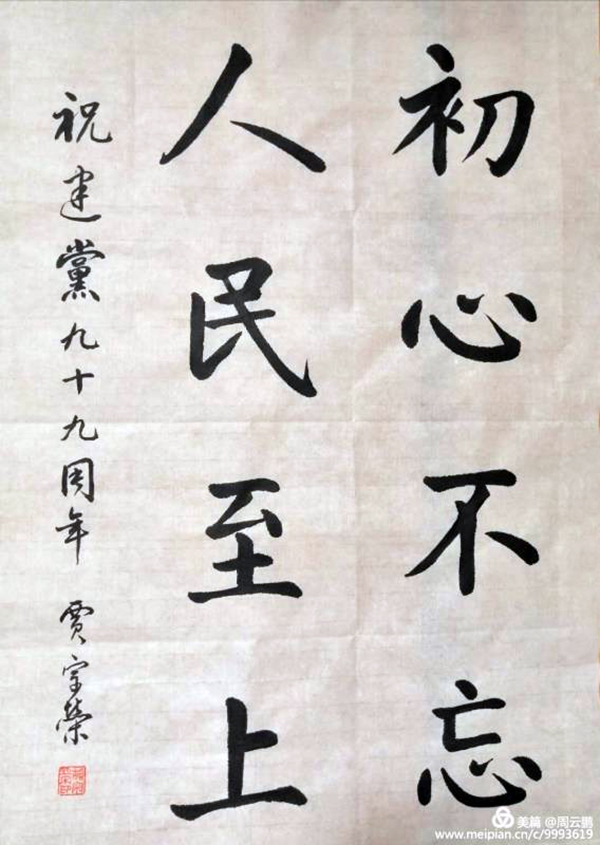 初心不忘
人民至上
祝建黨九十九周年 賈宗榮
美篇 @周云鹏
www.meipian.cn/c/9993619